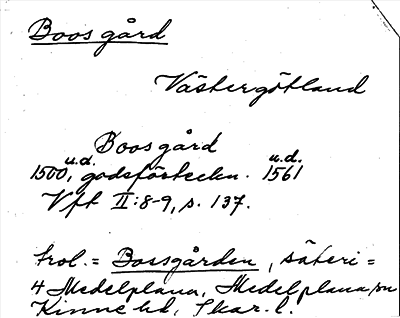 Boos gård
Västergötland
Boos gård
u.d. u.d.
1500, godsförteckn. 1561
Vft II:8-9, s. 137.
trol. = Bossgården, säteri =
4 Medelplana, Medelplana sn
Kinne hd, Skar. l.